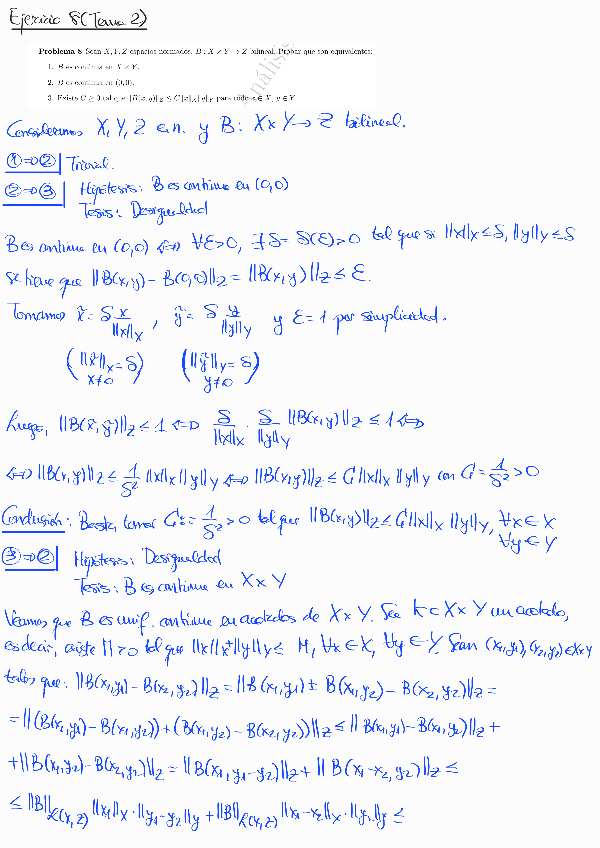 Ejercicio 8 (Tema 2)
Problema 8 Sean X, Y, Z espacios normados, B : X × Y → Z bilineal. Probar que son equivalentes:
1. B es continua en X × Y.
2. B es continua en (0,0).
3. Existe C ≥ 0 tal que ||B(x, y)||_Z ≤ C||x||_X||y||_Y para todo x ∈ X, y ∈ Y
Consideremos X, Y, Z e.n. y B: X×Y → Z bilineal.
①⇒② Trivial.
②⇒③ Hipótesis: B es continua en (0,0)
Tesis: Desigualdad
B es continua en (0,0) ⇔ ∀ε>0, ∃ δ=δ(ε)>0 tal que si ||x||_X ≤ δ, ||y||_Y ≤ δ
se tiene que ||B(x,y) - B(0,0)||_Z = ||B(x,y)||_Z ≤ ε.
Tomamos x̃ = δ x/||x||_X , ỹ = δ y/||y||_Y y ε=1 por simplicidad.
(||x̃||_X = δ x≠0) (||ỹ||_Y = δ y≠0)
Luego, ||B(x̃,ỹ)||_Z ≤ 1 ⇔ δ/||x||_X · δ/||y||_Y ||B(x,y)||_Z ≤ 1 ⇔
⇔ ||B(x,y)||_Z ≤ 1/δ² ||x||_X ||y||_Y ⇔ ||B(x,y)||_Z ≤ C ||x||_X ||y||_Y con C = 1/δ² > 0
Conclusión: Basta tomar C := 1/δ² > 0 tal que ||B(x,y)||_Z ≤ C ||x||_X ||y||_Y, ∀x ∈ X ∀y ∈ Y
③⇒② Hipótesis: Desigualdad
Tesis: B es continua en X×Y
Veamos que B es unif. continua en acotados de X×Y. Sea K⊂X×Y un acotado,
es decir, existe M>0 tal que ||x||_X+||y||_Y ≤ M, ∀x ∈ X, ∀y ∈ Y. Sean (x₁,y₁),(x₂,y₂) ∈ X×Y
tales que: ||B(x₁,y₁) - B(x₂,y₂)||_Z = ||B(x₁,y₁) ± B(x₁,y₂) - B(x₂,y₂)||_Z =
= ||(B(x₁,y₁) - B(x₁,y₂)) + (B(x₁,y₂) - B(x₂,y₂))||_Z ≤ ||B(x₁,y₁) - B(x₁,y₂)||_Z +
+ ||B(x₁,y₂) - B(x₂,y₂)||_Z = ||B(x₁,y₁-y₂)||_Z + ||B(x₁-x₂,y₂)||_Z ≤
≤ ||B||_L(X,Z) ||x₁||_X · ||y₁-y₂||_Y + ||B||_L(X,Z) ||x₁-x₂||_X · ||y₂||_Y ≤